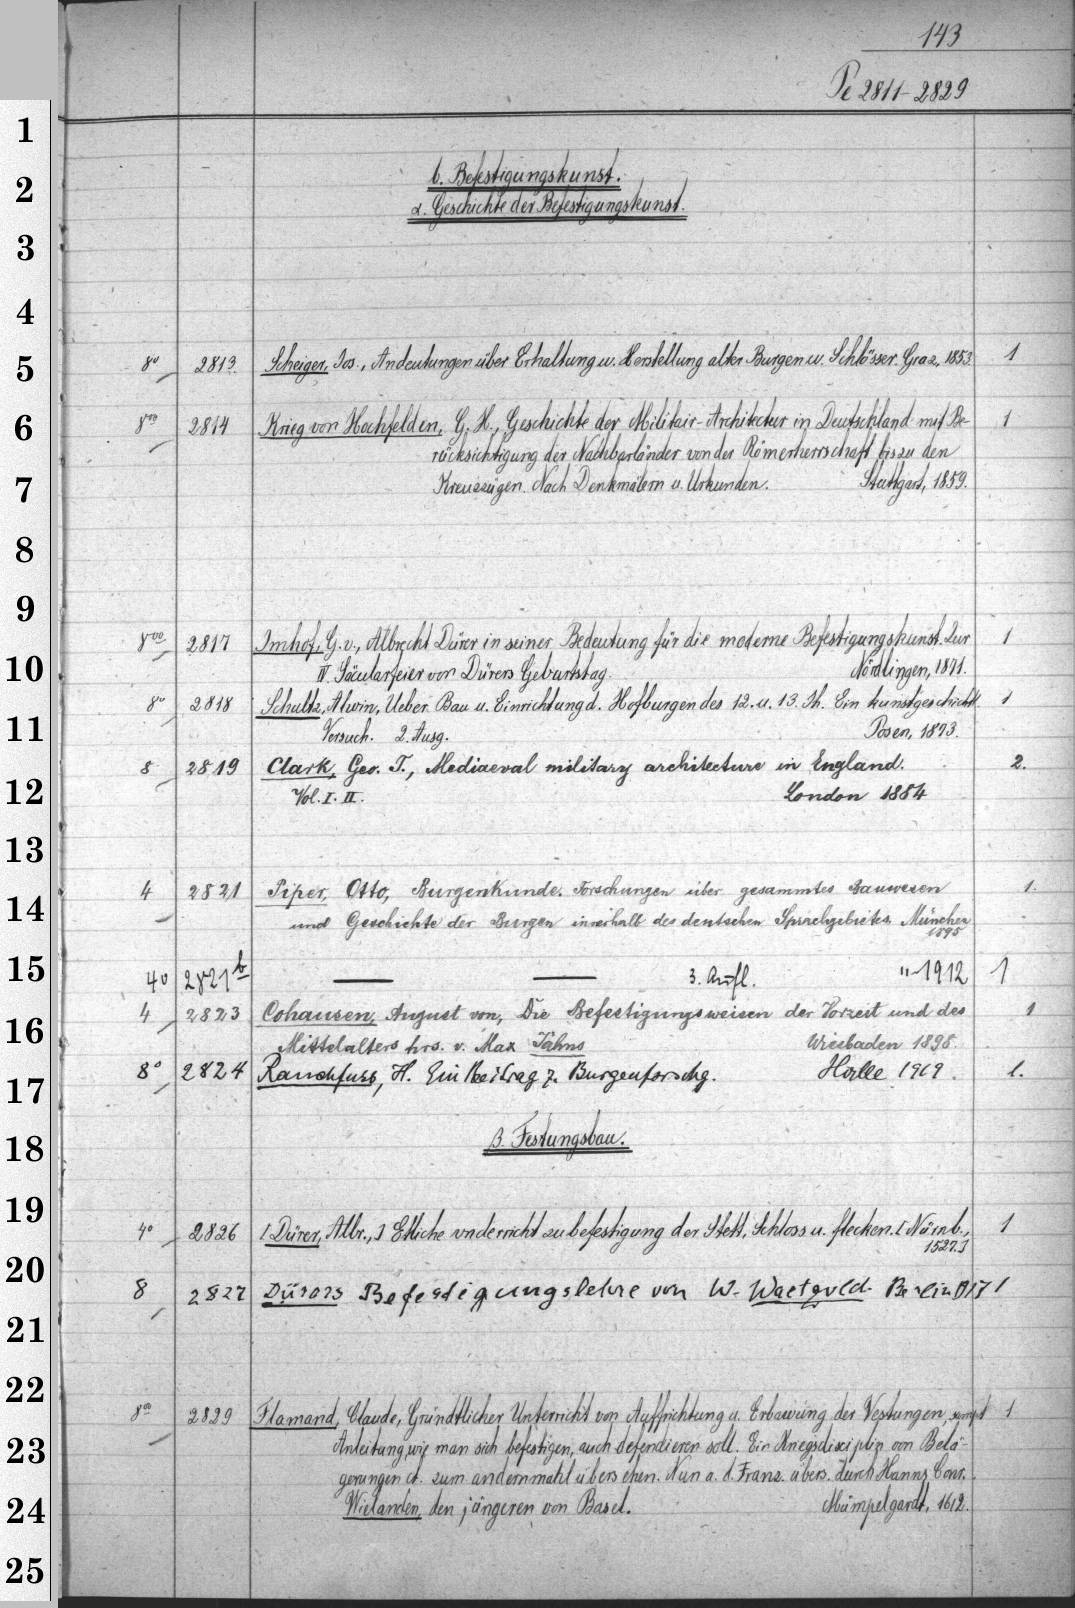 143
Pe 2811-2829
1
2
3
4
5
6
7
8
9
10
11
12
13
14
15
16
17
18
19
20
21
22
23
24
25
b. Befestigungskunst.
α. Geschichte der Befestigungskunst.
8° 2813. Scheiger, Jos., Andeutungen über Erhaltung u. Herstellung alter Burgen u. Schlösser. Graz, 1853. 1
8vo 2814 Krieg von Hochfelden, G. H., Geschichte der Militair-Architectur in Deutschland mit Be-
rücksichtigung der Nachbarländer von der Römerherrschaft bis zu den
Kreuzzügen. Nach Denkmälern u. Urkunden. Stuttgart, 1859. 1
8vo 2817 Imhof, G. v., Albrecht Dürer in seiner Bedeutung für die moderne Befestigungskunst. Zur
IV. Säcularfeier von Dürers Geburtstag. Nördlingen, 1871. 1
8° 2818 Schultz, Alwin, Ueber Bau u. Einrichtung d. Hofburgen des 12. u. 13. Jh. Ein kunstgeschichtl.
Versuch. 2. Ausg. Posen, 1873. 1
8 2819 Clark, Geo. T., Mediaeval military architecture in England. 2.
Vol. I. II. London 1884
4 2821 Piper, Otto, Burgenkunde. Forschungen über gesammtes Bauwesen 1.
und Geschichte der Burgen innerhalb des deutschen Sprachgebietes. München
1895
40 2821b — — 3. Aufl. " 1912 1
4 2823 Cohausen, August von, Die Befestigungsweisen der Vorzeit und des 1
Mittelalters hrs. v. Max Jähns Wiesbaden 1898.
8° 2824 Rauchfuss, H. Ein Beitrag z. Burgenforschg. Halle 1909. 1.
β. Festungsbau.
4° 2826 [Dürer, Albr.,] Etliche vnderricht zu befestigung der Stett, Schloss u. flecken. [Nürnb., 1
1527.]
8 2827 Dürers Befestigungslehre von W. Waetzold. Berlin 1917 1
8vo 2829 Flamand, Claude, Gründtlicher Unterricht von Auffrichtung u. Erbawung der Vestungen, sampt 1
Anleitung, wie man sich befestigen, auch defendieren soll. Ein Kriegsdisciplin von Belä-
gerungen ct. zum andernmahl übersehen. Nun a. d. Franz. übers. durch Hanns Conr.
Wielanden, den jüngeren von Basel. Mümpelgardt, 1612.